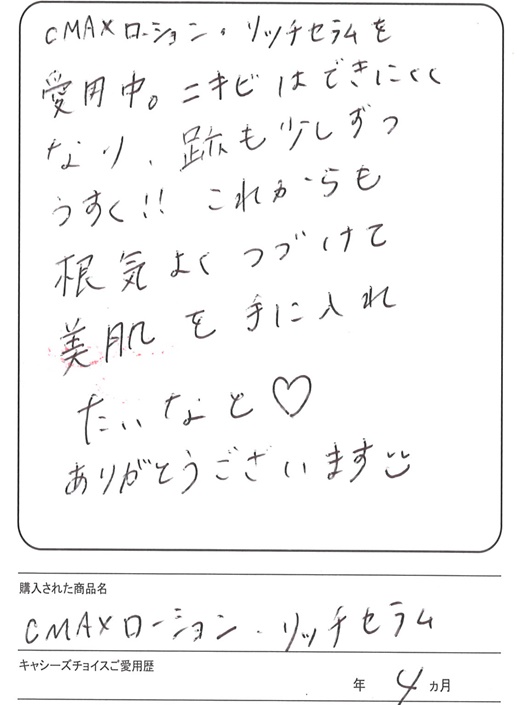 CMAXローション・リッチセラムを
愛用中。ニキビはできにくく
なり、跡も少しずつ
うすく!! これからも
根気よくつづけて
美肌を手に入れ
たいなと♡
ありがとうございます
購入された商品名
CMAXローション・リッチセラム
キャシーズチョイスご愛用歴
年 4 カ月